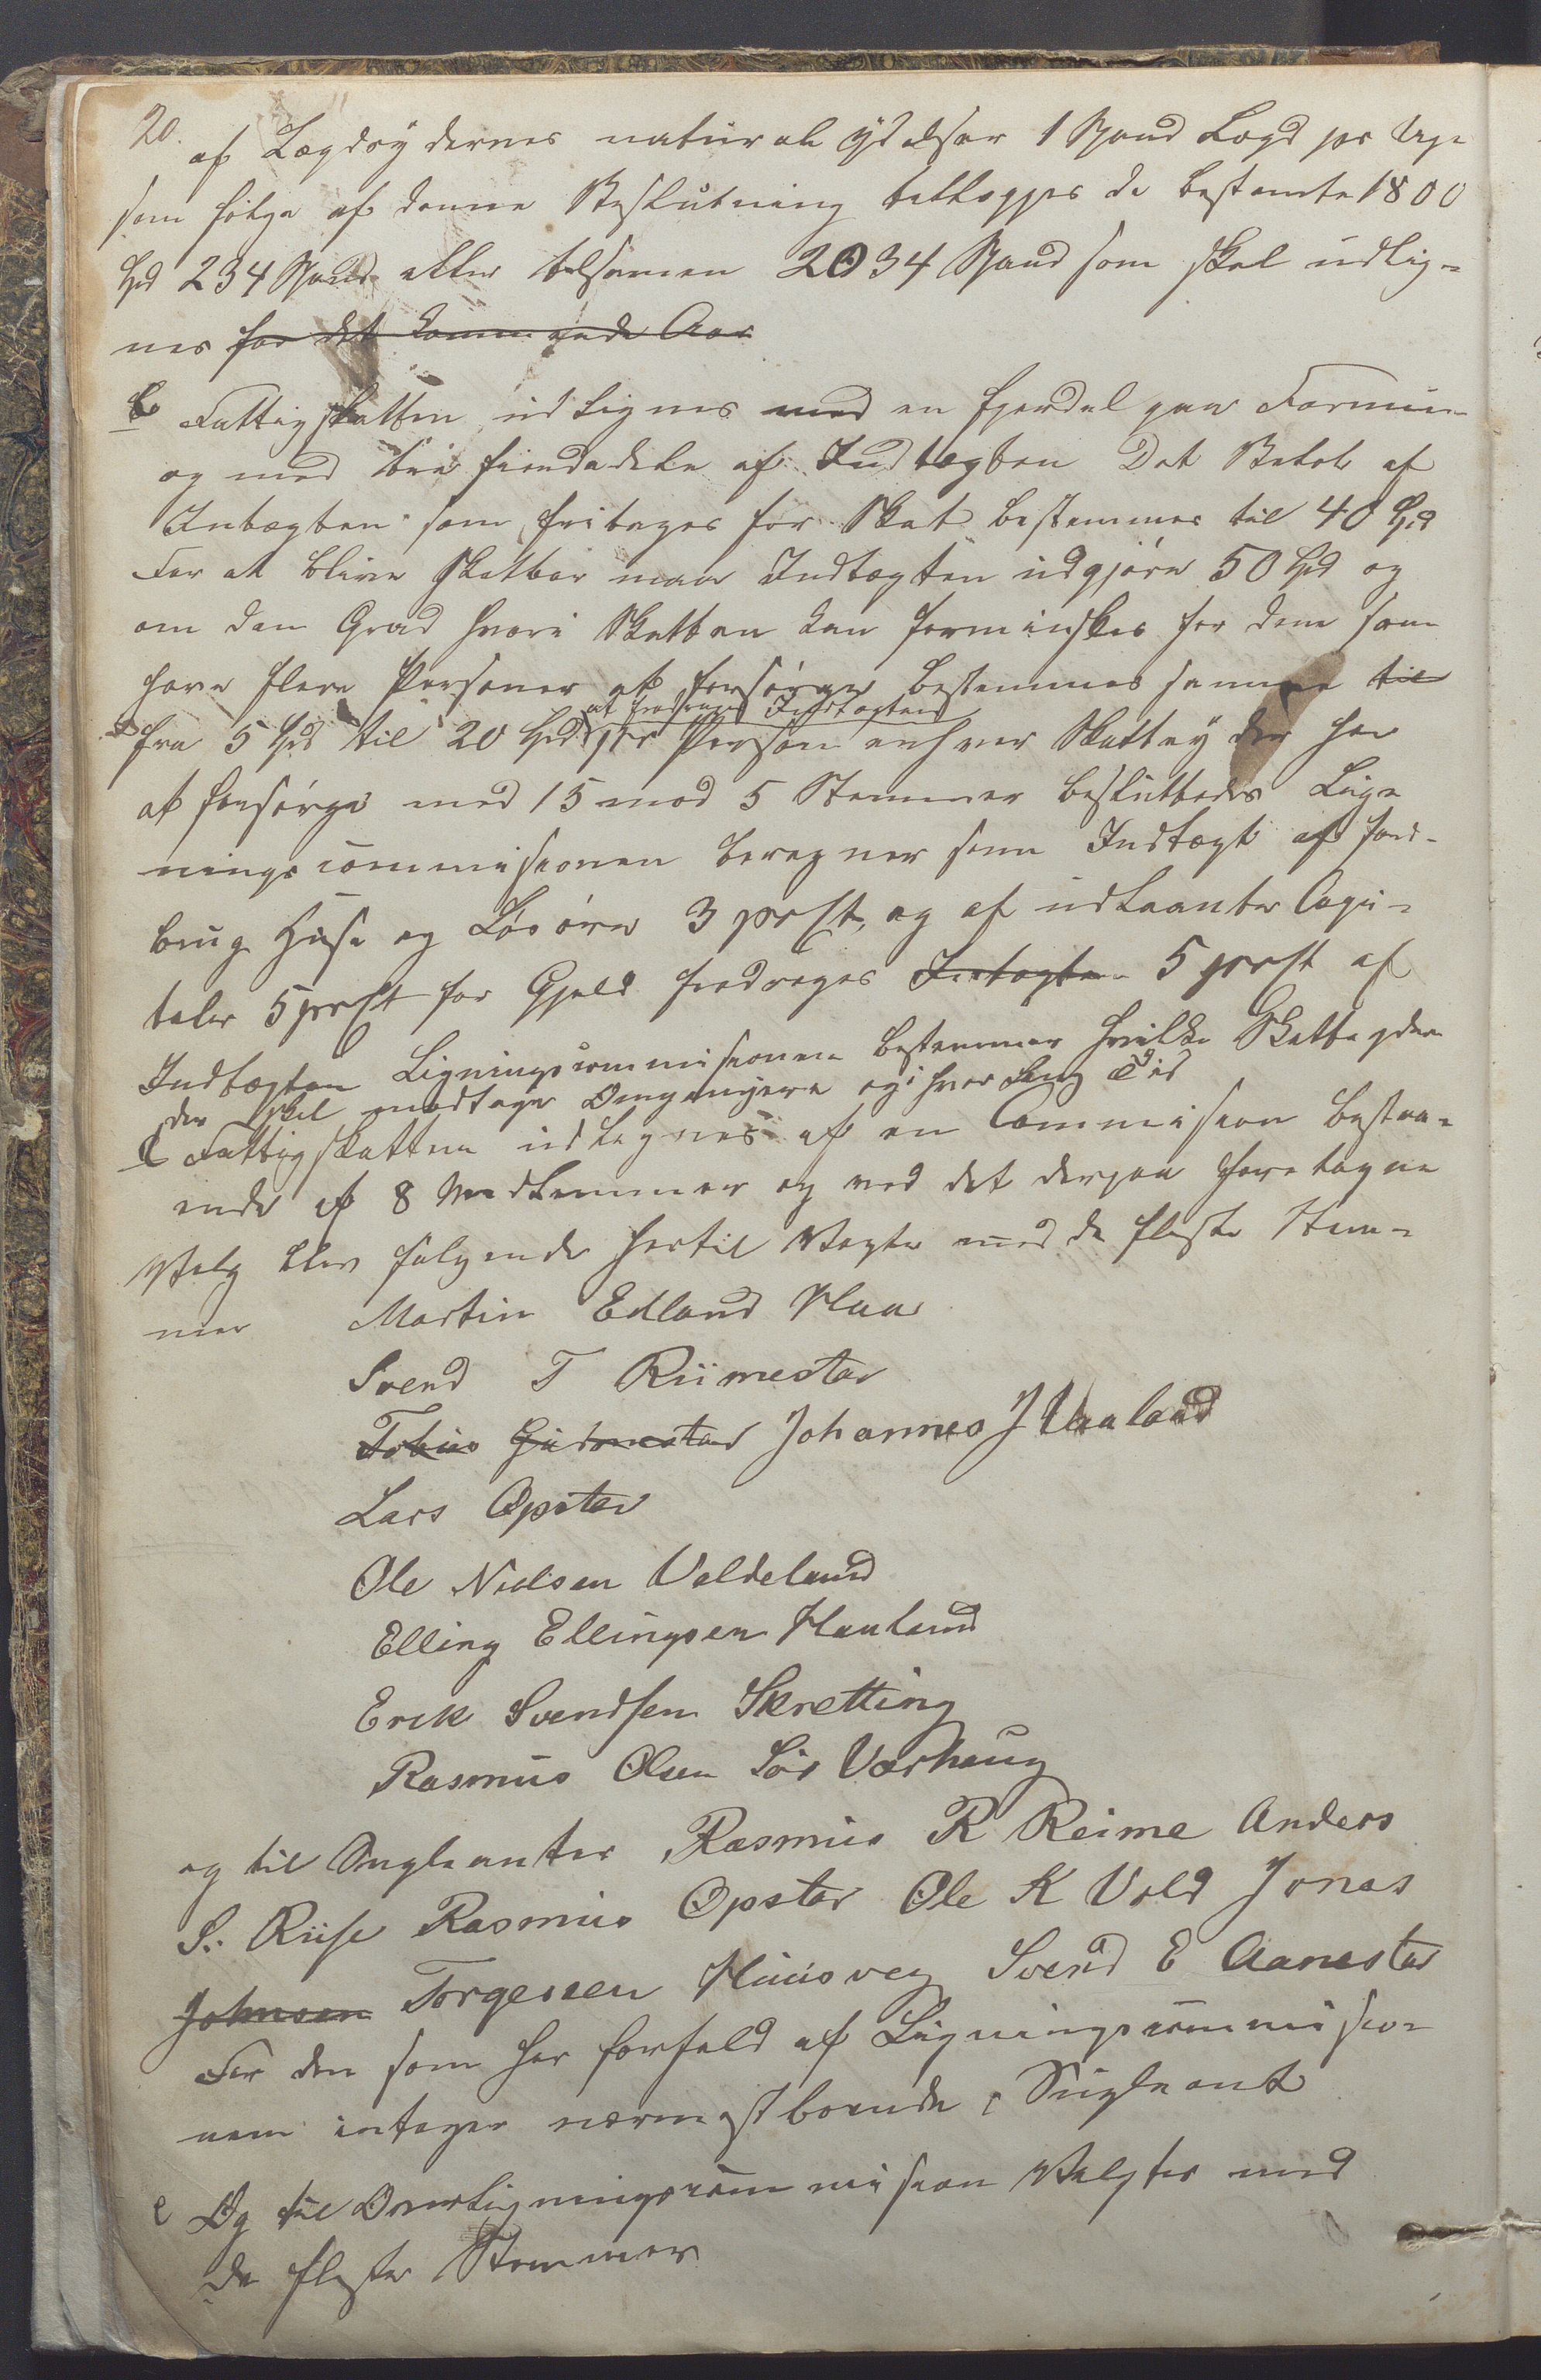 20.
af Lægdsydernes natural ydelser 1 Spand Lægd pr Uge
som følge af denne Beslutning tillægges de bestemte 1800
Spd 234 Spand eller tilsamen 2034 Spand som skal udlig-
nes for det kommende Aar
b Fattigskatten udlignes med en fjerdel paa Formue
og med tre fierdedele af Indtægten Det Beløb af
Intægten som fritages for Skat bestemmes til 40 Spd
For at blive skatbar maa Indtægten udgjøre 50 Spd og
om den Grad hvori Skatten kan forminskes for dem som
have flere Personer at forsørge bestemmes samme til
at fradrages Indtægten
fra 5 Spd til 20 Spd pr Person enhver Skatteyder har
at forsørge med 15 mod 5 Stemmer besluttedes Lig-
ningscommissionen beregner som Indtægt af Jord-
brug Huse og Løsøre 3 prCt, og af udlaante Capi-
taler 5 prCt for Gjeld fradrages Intægten 5 prCt af
Indtægten Ligningscommisionen bestemmer hvilke Skatteydere
der skal modtage Omgangere og i hvor lang Tid
d Fattigskatten udlignes af en Commision bestaa-
ende af 8 Medlemmer og ved det derpaa foretagne
Valg blev følgende hertil Valgte med de fleste Stem-
mer Martin Edland Haa
Svend T Riimestad
Tobias Gudmestad Johannes J Haaland
Lars Opstad
Ole Nielsen Valdeland
Elling Ellingsen Haaland
Erik Svendsen Skretting
Rasmus Olsen Sør Varhaug
og til Supleanter Rasmus R Reime Anders
S. Riise Rasmus Opstad Ole K Vold Jonas
Johnsen Torgersen Huusveg Svend E Aanestad
For den som har forfald af Ligningscommisio-
nen intager nærmestboende Supleant
e Og til Overligningscommision Valgtes med
de fleste Stemmer